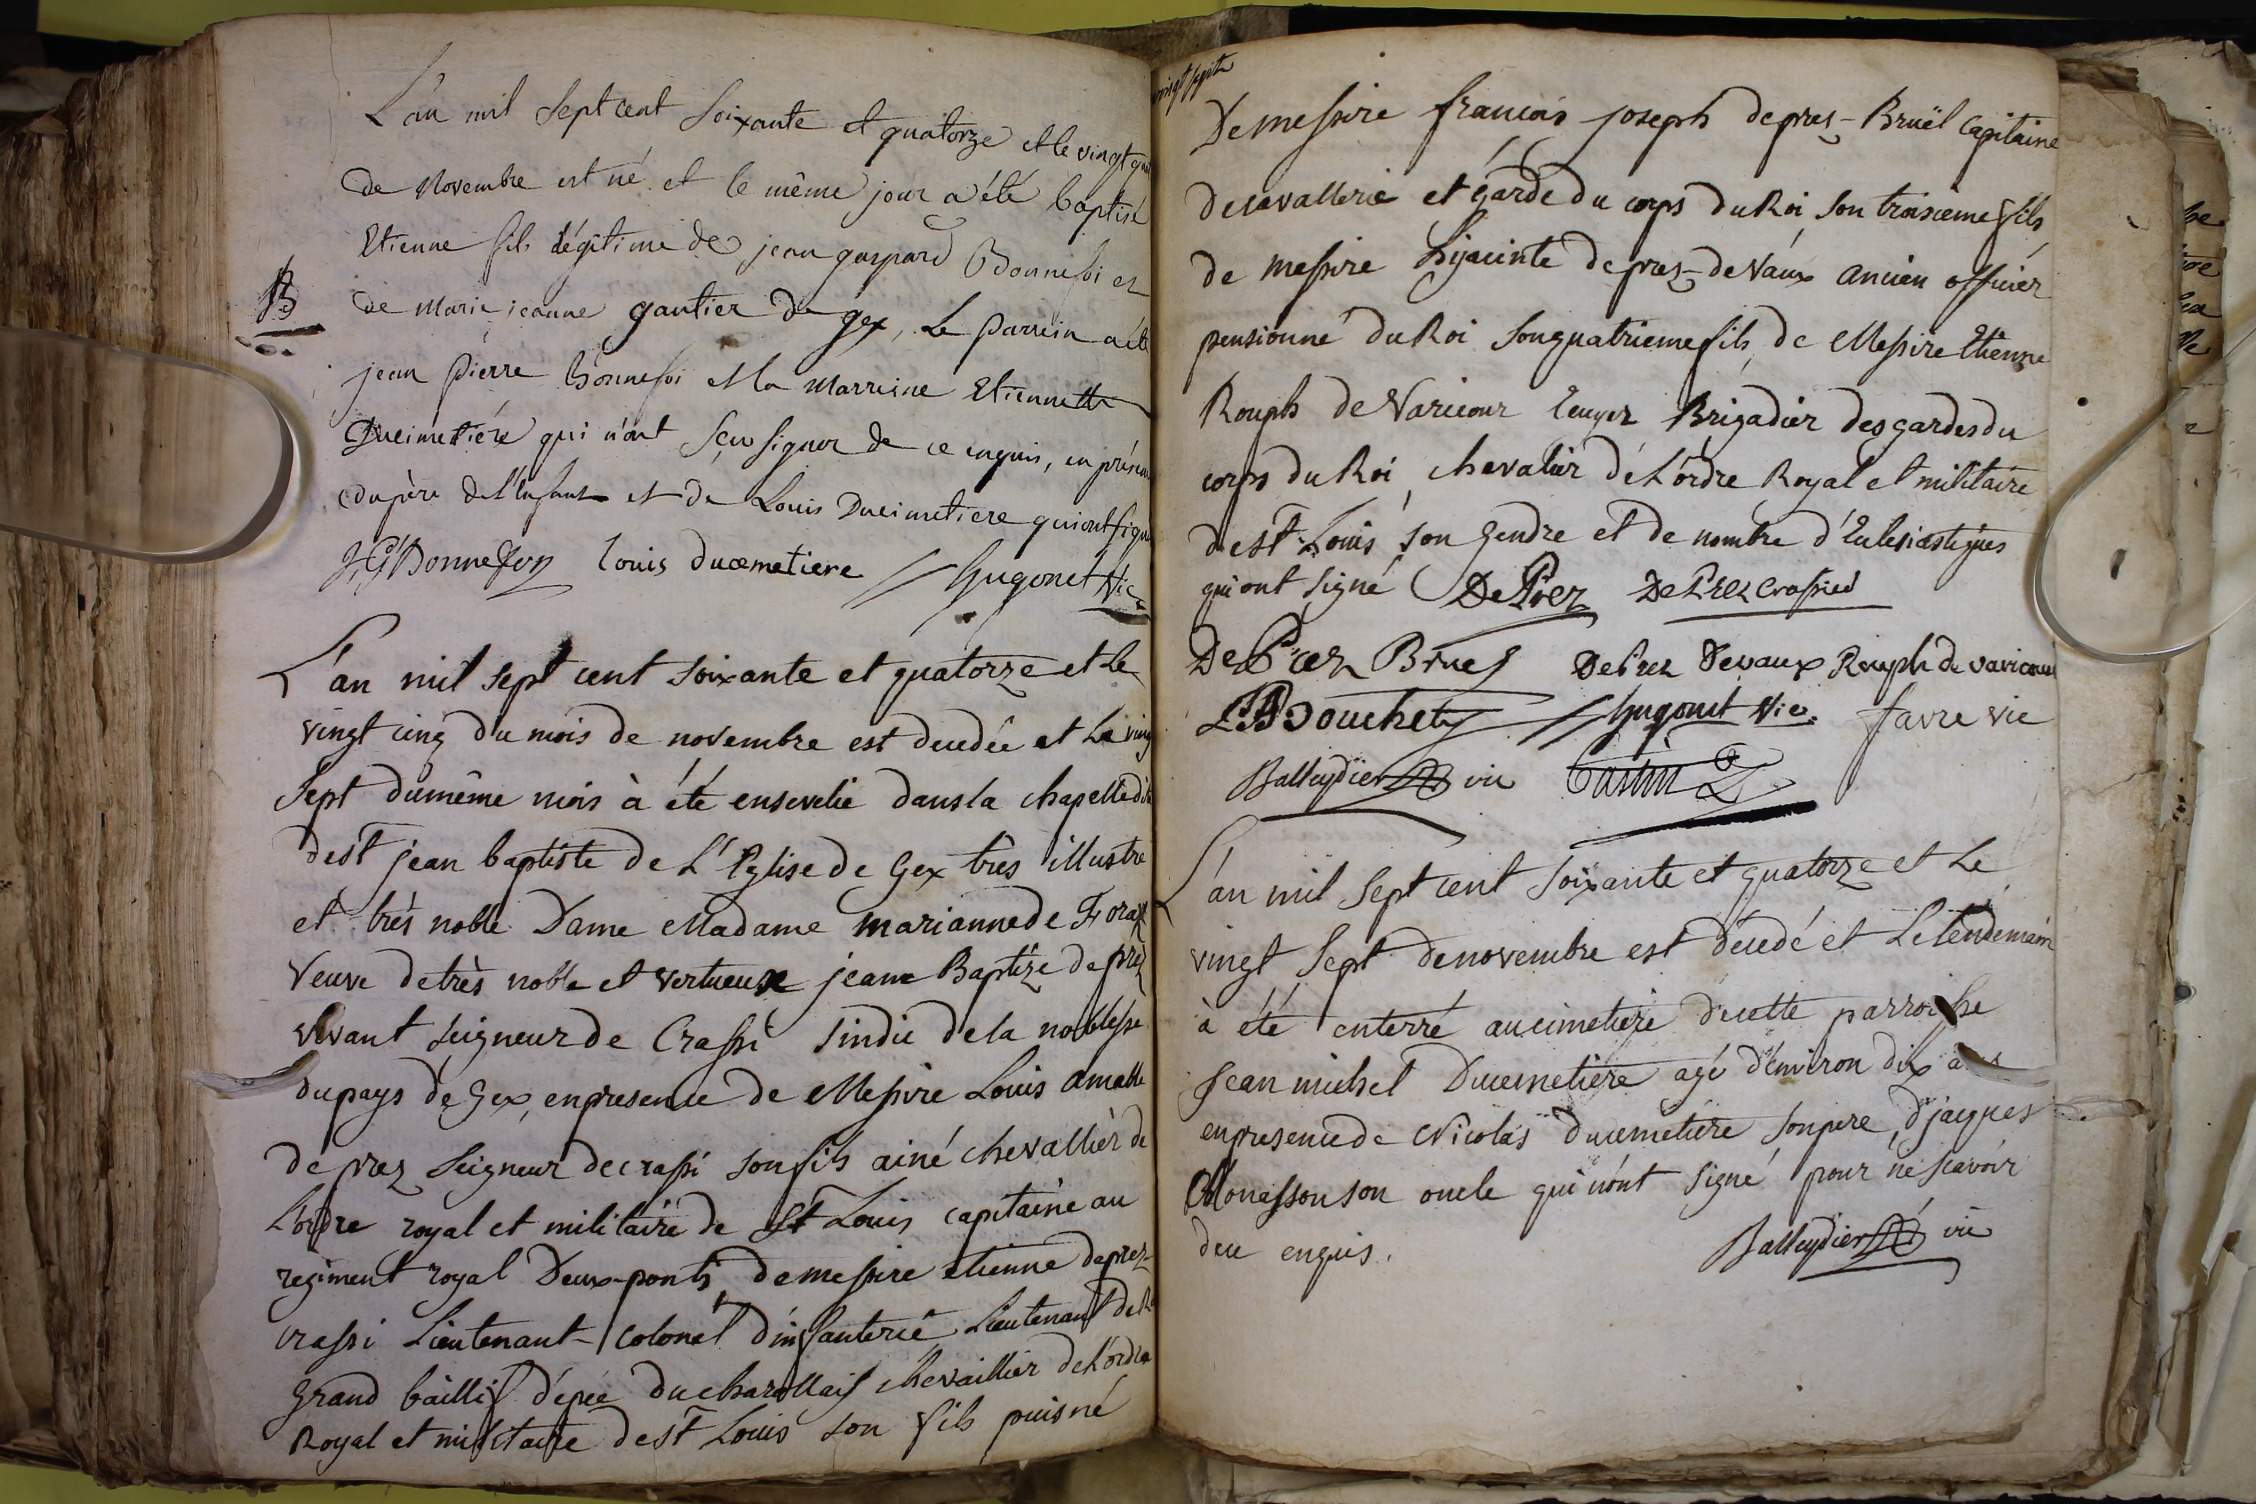 L'an mil sept cent soixante et quatorze et le vingt
de Novembre est né et le même jour a été baptisé
Etienne fils légitime de jean gaspard Bonnefoi et
B
de Marie jeanne gautier de gex, Le parrein a été
jean pierre Bonnefoi et la marreine Etiennette
Ducimetiére qui n'ont sçu signer de ce enquis, en présen
du père de l'enfant et de Louis Ducimetiere qui ont sign
J. G. Bonnefoy louis ducemetiere Hugonet Vic.
L'an mil sept cent soixante et quatorze et Le
vingt cinq du mois de novembre est decedée et Le ving
sept du même mois à été ensevelie dans la chapelle di
de st jean baptiste de L'Eglise de Gex très illustre
et très noble Dame Madame marianne de Foras
veuve de très noble et vertueux jean Baptize de prez
vivant seigneur de Crassi sindic de la noblesse
du pays de Gex, en presence de Messire Louis amable
de prez seigneur de crassi son fils ainé chevallièr de
L'ordre royal et militaire de St Louis capitaine au
regiment royal Deux-ponts, de messire etienne de prez-
crassi Lieutenant-colonel d'infanterie Lieutenant de R
grand baillif d'épée du charollais chevaillier de L'ordre
Royal et militaire de st Louis son fils puisné
vingt sept
De messire francois joseph de prez-Bruël capitaine
de cavallerie et garde du corps du Roi, son troisieme fils
de messire hyacinte de prez-de Vaux ancien officiér
pensionné du Roi son quatrieme fils, de Messire Etienne
Rouph de Varicour Ecuyer Brigadiér des gardes du
corps du Roi, chevaliér de L'ordre Royal et militaire
de st Louis son gendre et de nombre d'Eclesiastiques
qui ont signé De Prez De Prez Crassier
De Prez Bruel De Prez Devaux Rouph de varicour
Bouchet Hugonet Vic. favre vic
Balleydier vic Castin
L'an mil sept cent soixante et quatorze et Le
vingt sept de novembre est décedé et Le lendemain
à été enterré au cimetiere de cette parroisse
Jean michel Ducemetiere agé d'environ dix ans
en presence de Nicolas ducemetiere son pere, de jacques
son oncle qui n'ont signé pour ne scavoir
de ce enquis.
Balleydier vic